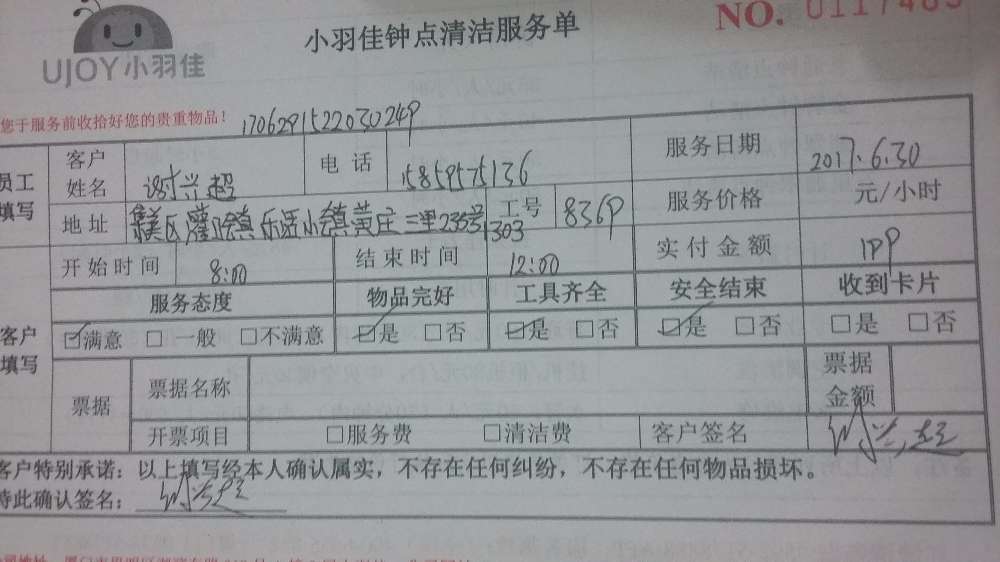 UJOY小羽佳
小羽佳钟点清洁服务单
NO. 0117485
您于服务前收拾好您的贵重物品！
员工填写
客户姓名 谢兴超 电话 15859575136 服务日期 2017.6.30
地址 集美区灌口镇 三里235号1303 工号 836P 服务价格 元/小时
开始时间 8:00 结束时间 12:00 实付金额
服务态度 物品完好 工具齐全 安全结束 收到卡片
客户填写
☑满意 □一般 □不满意 ☑是 □否 ☑是 □否 ☑是 □否 □是 □否
票据 票据名称 票据金额
开票项目 □服务费 □清洁费 客户签名 谢兴超
客户特别承诺：以上填写经本人确认属实，不存在任何纠纷，不存在任何物品损坏。
特此确认签名： 谢兴超